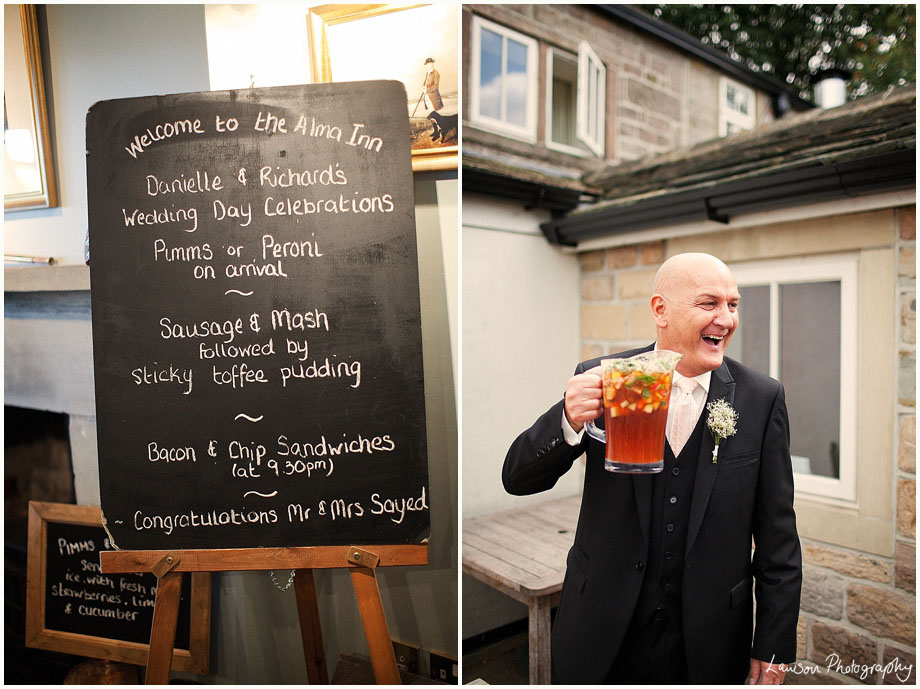 Welcome to the Alma Inn
Danielle & Richard's
Wedding Day Celebrations
Pimms or Peroni
on arrival
~
Sausage & Mash
followed by
sticky toffee pudding
~
Bacon & Chip Sandwiches
(at 9.30pm)
~
~ Congratulations Mr & Mrs Sayed
Pimms
ice. with fresh
strawberries. Lim
& cucumber
Lawson Photography